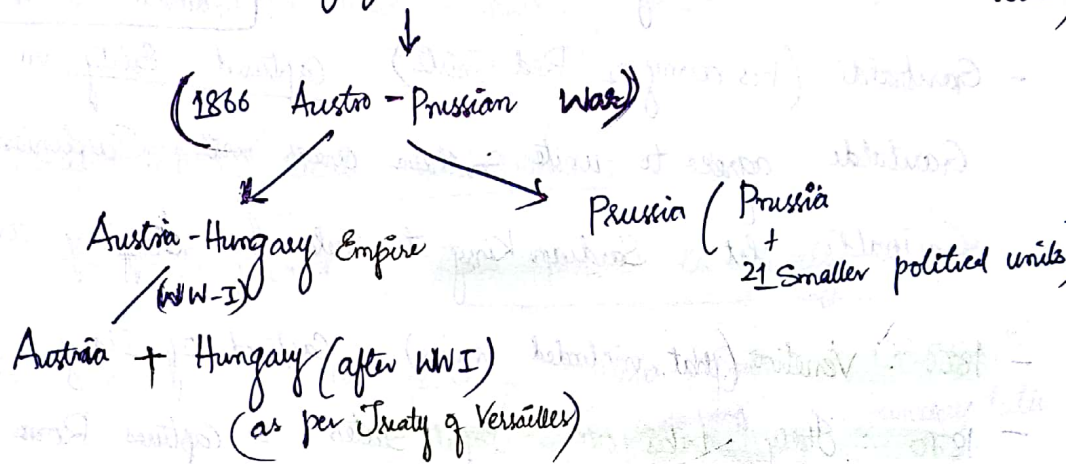 (1866 Austro-Prussian War)
Austria-Hungary Empire
Prussia (Prussia
+
21 Smaller political units)
(WW-I)
Austria + Hungary (after WWI)
(as per Treaty of Versailles)